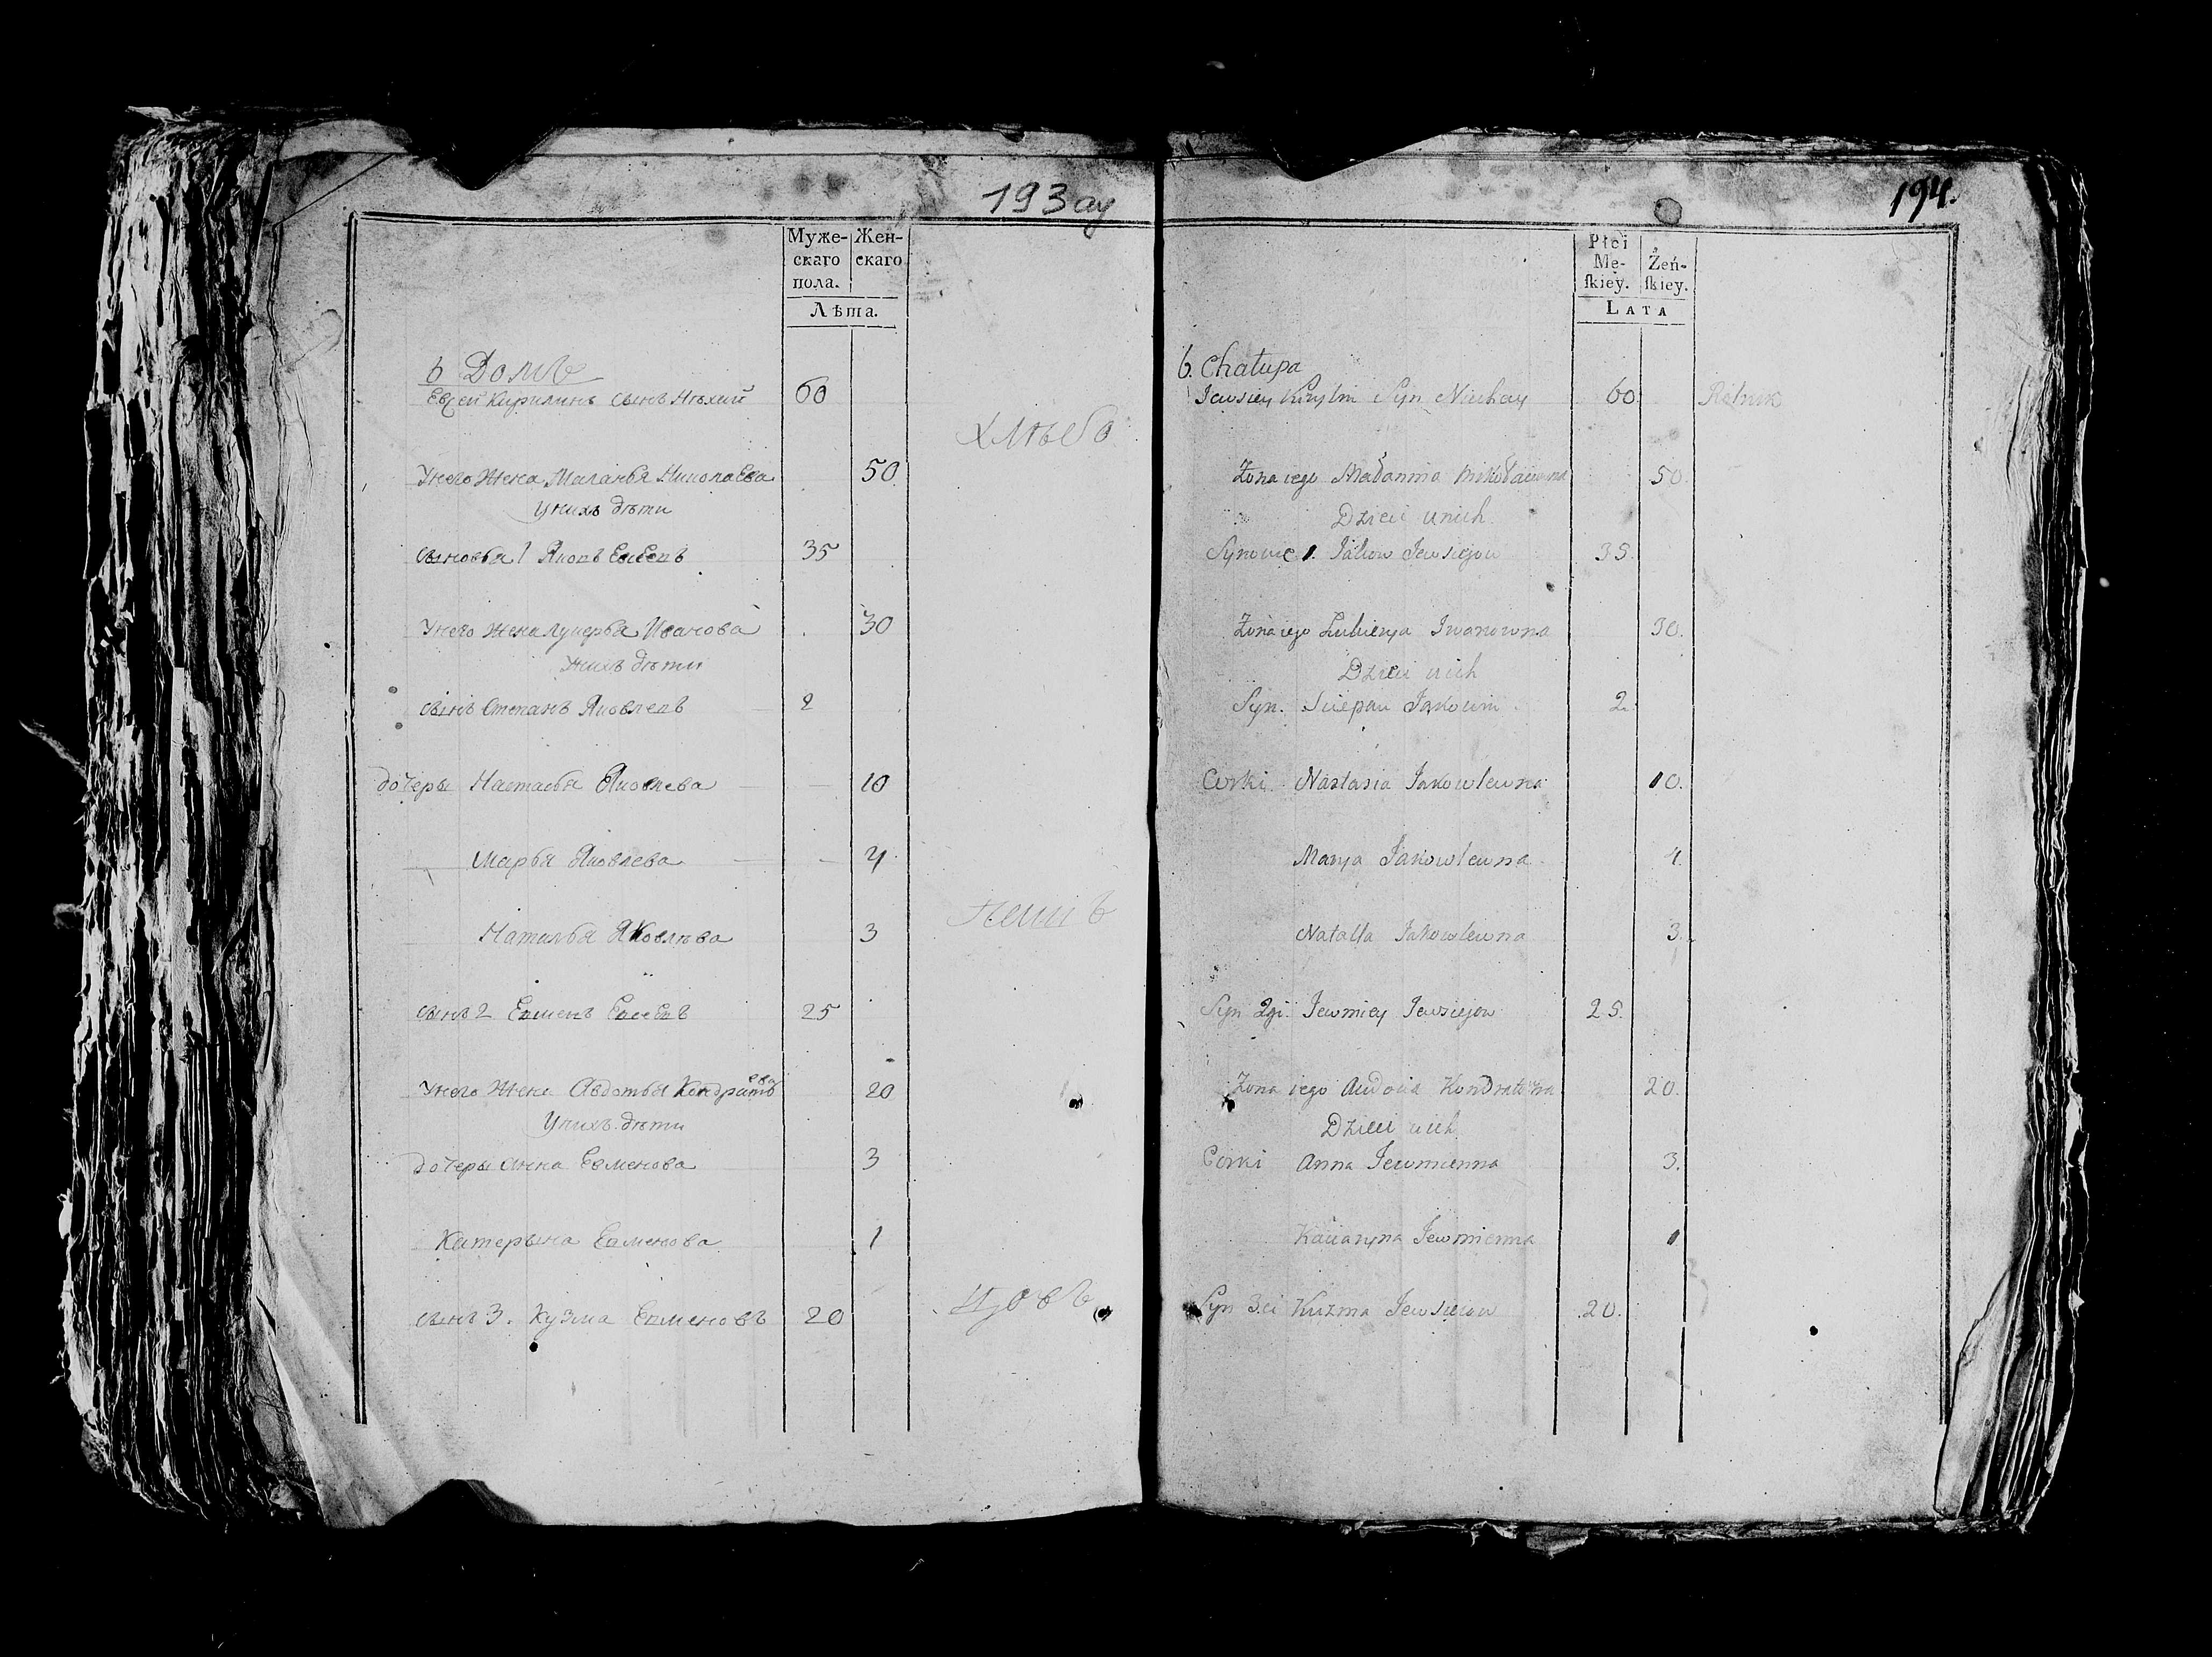 193 ау
Муже- Жен-
скаго скаго
пола.
Лѣта.
6 Домъ
Евсей Кирилинъ сынъ Нѣхай 60
хлѣбо
У него жена Маланья Николаева 50
У нихъ дѣти
сыновья 1 Яковъ Евсеевъ 35
У него жена Лукерья Иванова 30
У нихъ дѣти
сынъ Степанъ Яковлевъ 2
дочеры Настасья Яковлева 10
Марья Яковлева 4
Наталья Яковлѣва 3
пашѣ
сынъ 2 Евменъ Евсеевъ 25
У него жена Авдотья Кондратьева 20
У нихъ дѣти
дочеры Анна Евменова 3
Катерына Евменова 1
сынъ 3. Кузма Евменовъ 20
цовъ
194.
Płci
Mę- Żeń-
ſkiey. ſkiey.
LATA
6. Chałupa
Jewsiey Kirylin Syn Niechay 60 Rolnik
Żona iego Małannia Mikołaiewna 50
Dzieci u nich
Synowie 1. Jakow Jewsiejow 35.
Żona iego Łukierya Iwanowna 30.
Dzieci u ich
Syn. Sciepan Jakowin 2.
Corki Nastasia Jakowlewna 10.
Marya Jakowlewna 4.
Natalla Jakowlewna 3.
Syn 2gi Jewmiey Jewsiejow 25.
Żona iego Audocia Kondratowna 20.
Dzieci u ich
Corki Anna Jewmienna 3.
Kaciaryna Jewmienna 1
Syn 3ci Kuzma Jewsieiow 20.